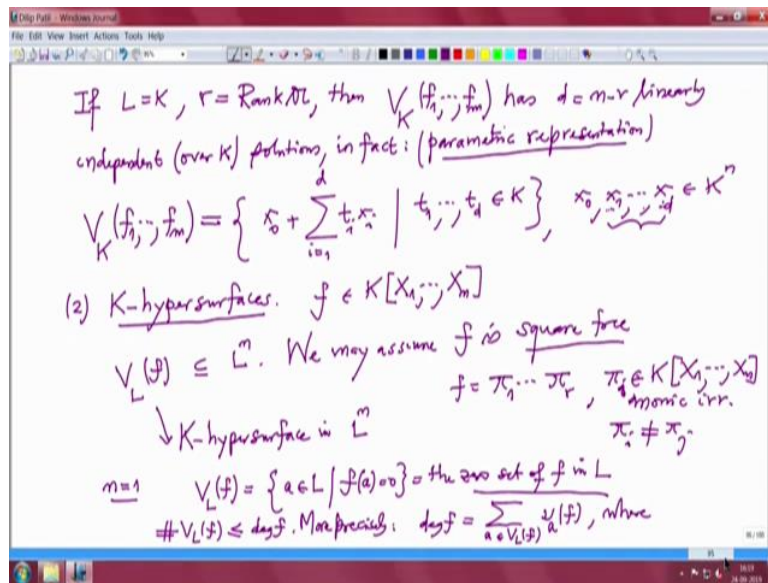 Dilip Patil - Windows Journal
File Edit View Insert Actions Tools Help
If L=K, r = Rank 𝔐, then V_K(f_1,…,f_m) has d=n-r linearly
independent (over K) solutions, in fact: (parametric representation)
V_K(f_1,…,f_m) = { x_0 + ∑_{i=1}^{d} t_i x_i | t_1,…,t_d ∈ K }, x_0, x_1,…,x_d ∈ K^n
(2) K-hypersurfaces. f ∈ K[X_1,…,X_n]
V_L(f) ⊆ L^n. We may assume f is square free
f = π_1 … π_r, π_i ∈ K[X_1,…,X_n]
↓ K-hypersurface in L^n monic irr.
π_i ≠ π_j
n=1 V_L(f) = {a ∈ L | f(a)=0} = the zero set of f in L
#V_L(f) ≤ deg f. More precisely: deg f = ∑_{a ∈ V_L(f)} ν_a(f), where